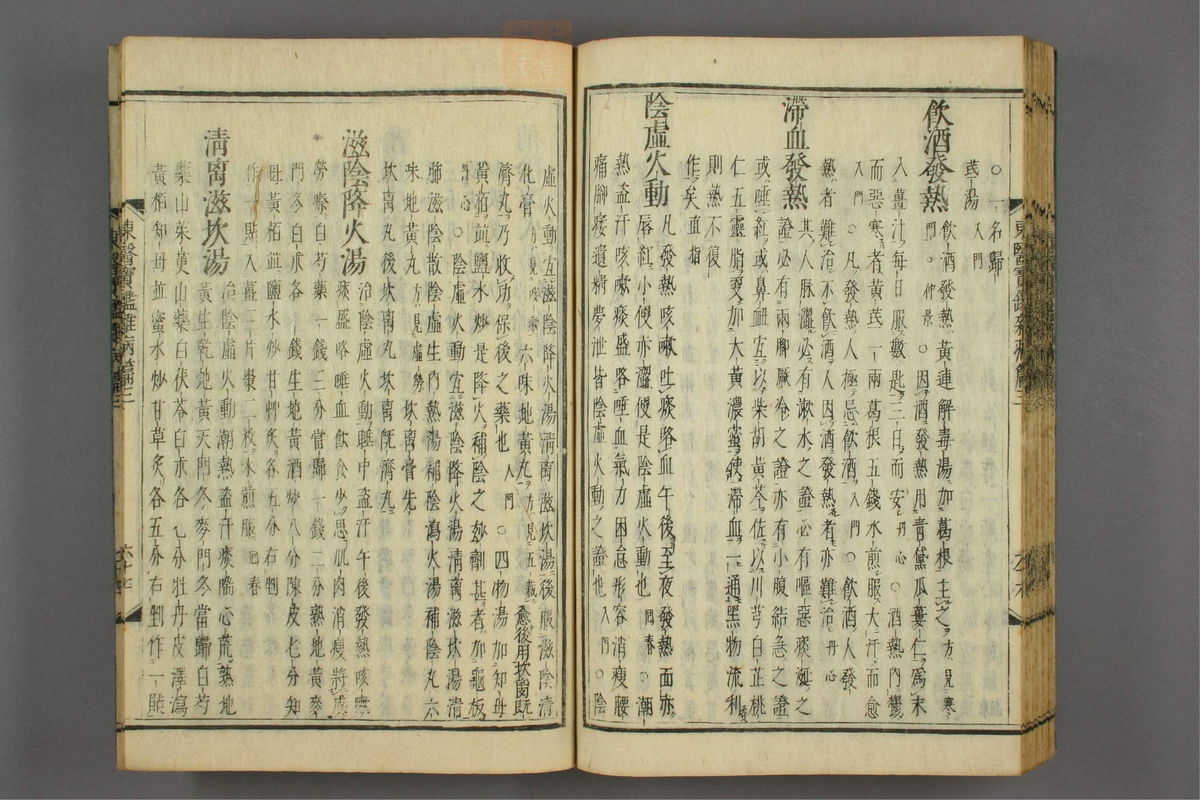 ○一名歸
芪湯入門
飮酒發熱
飮酒發熱黃連解毒湯加葛根主之方見寒
門○仲景○因酒發熱用靑黛瓜蔞仁爲末
入薑汁每日服數匙三日而安丹心○酒熱內鬱
而惡寒者黃芪一兩葛根五錢水煎服大汗而愈
入門○凡發熱人極忌飮酒入門○飮酒人發
熱者難治不飮酒人因酒發熱者亦難治丹心
滯血發熱
其人脈澁必有漱水之證必有嘔惡痰涎之
證必有兩脚厥冷之證亦有小腹結急之證
或唾紅或鼻衄宜以柴胡黃芩佐以川芎白芷桃
仁五靈脂更加大黃濃蜜使滯血一通黑物流利
則熱不復
作矣直指
陰虛火動
凡發熱咳嗽吐痰咯血午後至夜發熱面亦
唇紅小便赤澁便是陰虛火動也回春○潮
熱盜汗咳嗽痰盛咯唾血氣力困怠形容消瘦腰
痛腳痿遺精夢泄皆陰虛火動之證也入門○陰
虛火動宜滋陰降火湯淸离滋坎湯後服滋陰淸
化膏方見咳嗽六味地黃丸方見五藏愈後用坎离旣
濟丸乃收功保後之藥也入門○四物湯加知母
黃栢並鹽水炒是降火補陰之妙劑甚者加龜板
丹心○陰虛火動宜滋陰降火湯淸离滋坎湯淸
肺滋陰散陰虛生內熱湯補陰瀉火湯補陰丸六
味地黃丸方見虛勞坎离膏先
坎离丸後坎离丸坎离旣濟丸
滋陰降火湯
治陰虛火動睡中盜汗午後發熱咳嗽
痰盛咯唾血飮食少思肌肉消瘦將成
勞瘵白芍藥一錢三分當歸一錢二分熟地黃麥
門冬白朮各一錢生地黃酒炒八分陳皮七分知
母黃栢並鹽水炒甘艸炙各五分右剉
作一貼入薑三片棗二枚水煎服回春
淸离滋坎湯
治陰虛火動潮熱盜汗痰喘心荒熟地
黃生乾地黃天門冬麥門冬當歸白芍
藥山茱萸山藥白伏苓白朮各七分牡丹皮澤瀉
黃栢知母並蜜水炒甘草炙各五分右剉作一貼